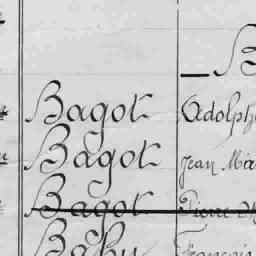 B
Bagot Adolph
Bagot Jean Ma
Bagot Pierre
Bahu François